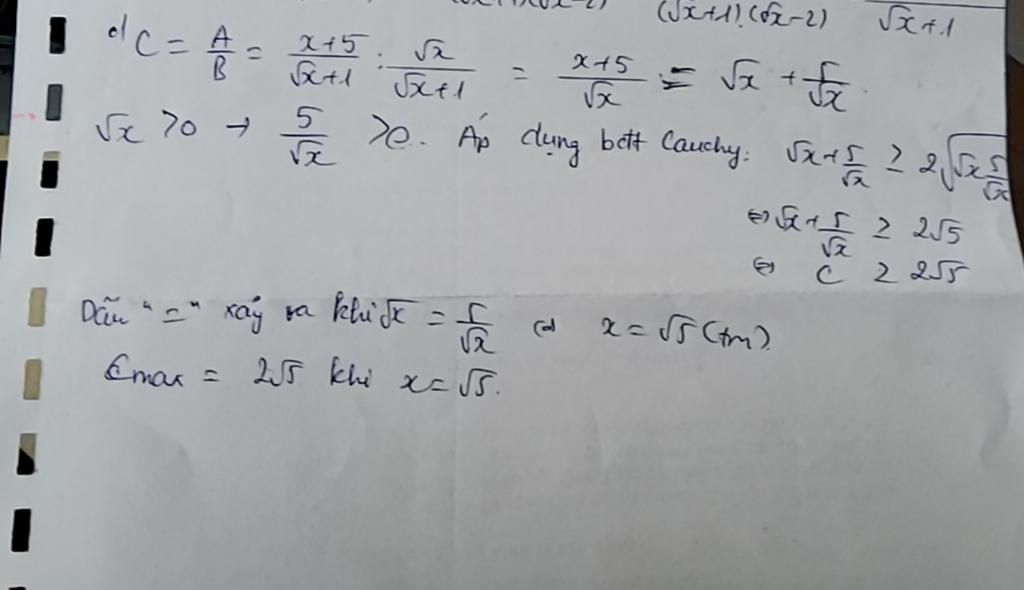 (√x+1).(√x-2) √x+1
d) C = A/B = (x+5)/(√x+1) : √x/(√x+1) = (x+5)/√x = √x + 5/√x.
√x >0 → 5/√x >0. Áp dụng bđt Cauchy: √x+5/√x ≥ 2√(√x 5/√x)
⇔ √x+5/√x ≥ 2√5
⇔ C ≥ 2√5
Dấu "=" xảy ra khi √x = 5/√x ⇔ x = √5 (tm).
Cmax = 2√5 khi x = √5.